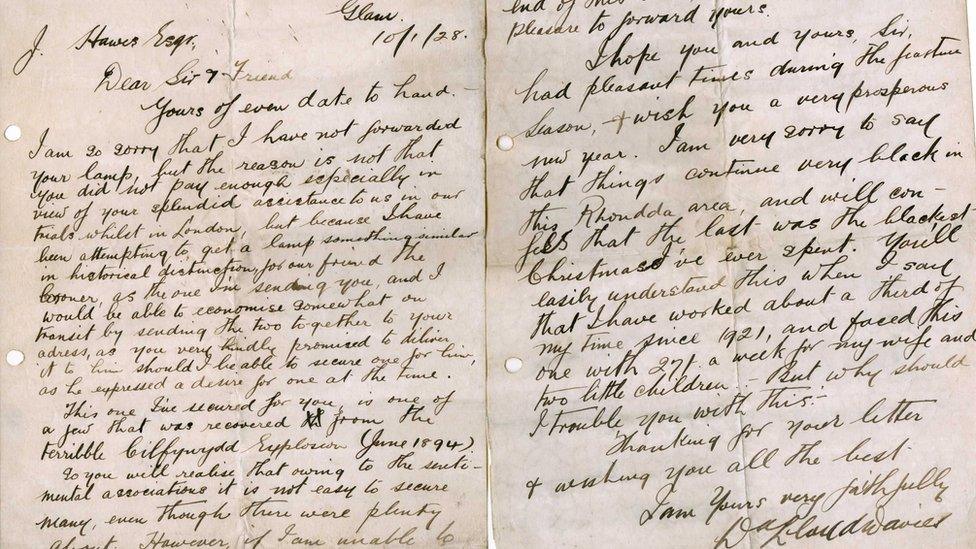 Glam.
10/1/28.
J. Hawes Esqr,
Dear Sir & Friend
Yours of even date to hand. —
I am so sorry that I have not forwarded
your lamp, but the reason is not that
you did not pay enough especially in
view of your splendid assistance to us in our
trials whilst in London, but because I have
been attempting to get a lamp something similar
in historical distinction, for our friend the
Coroner, as the one I'm sending you, and I
would be able to economise somewhat on
transit by sending the two together to your
adress, as you very kindly promised to deliver
it to him should I be able to secure one for him,
as he expressed a desire for one at the time.
This one I've secured for you, is one of
a few that was recovered from the
terribble Cilfynydd Explosion (June 1894)
So you will realise that owing to the senti-
mental associations it is not easy to secure
many, even though there were plenty
about. However, if I am unable to
end of this
pleasure to forward yours.
I hope you and yours, Sir,
had pleasant times during the festive
Season, & wish you a very prosperous
new year. I am very sorry to say
that things continue very black in
this Rhondda area, and will con-
fess that the last was the blackest
Christmas I've ever spent. You'll
easily understand this when I say
that I have worked about a third of
my time since 1921, and faced this
one with 27/- a week for my wife and
two little children. — But why should
I trouble you with this. —
Thanking for your letter
& wishing you all the best
I am Yours very faithfully
Lloyd Davies